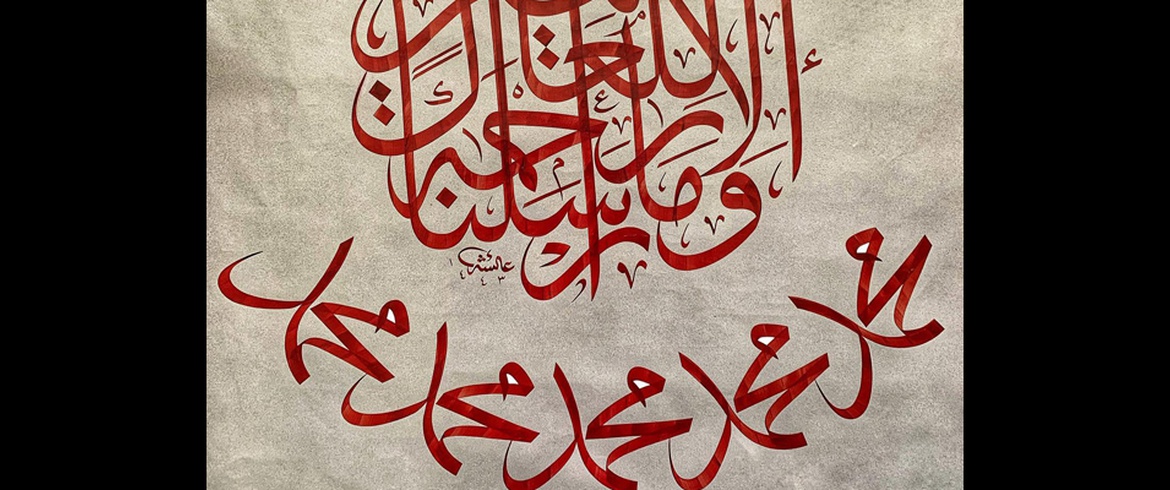 وما أرسلناك إلا رحمة للعالمين
عائشة ١٤٤٣
محمد محمد محمد محمد محمد